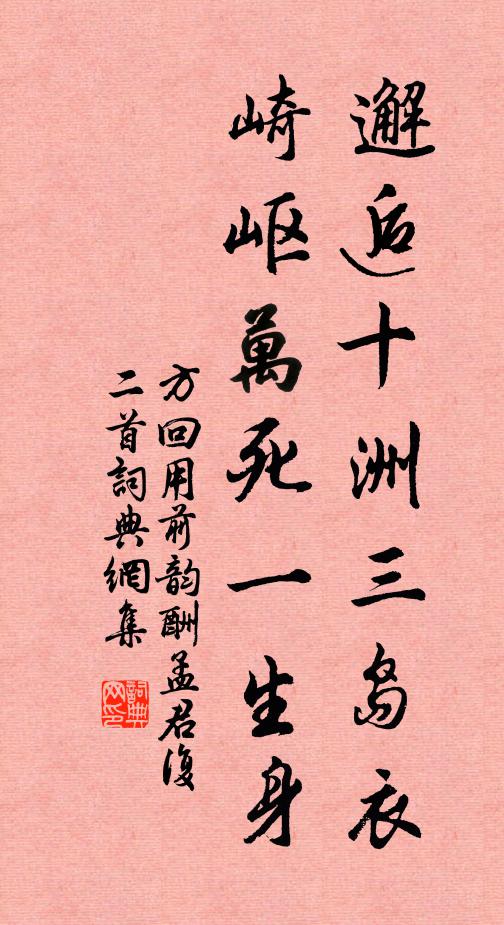 邂逅十洲三島衣
崎岖萬死一生身
方回用前韵酬孟君復
二首詞典網集
詞典
网印